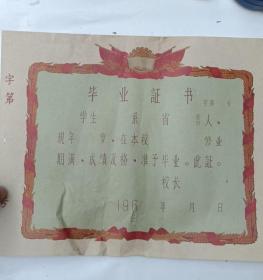 毕业証书
学生 系 省 人，
現年 岁，在本校 毕业
期满，成績及格，准予毕业。此証。
校长
196 年 月 日
字第